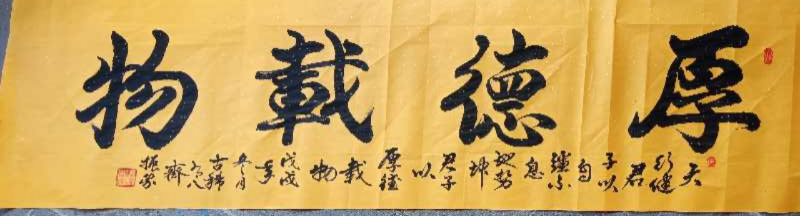 厚德載物
天行健君子以自強不息地势坤君子以厚德載物
戊戌年冬月古稀